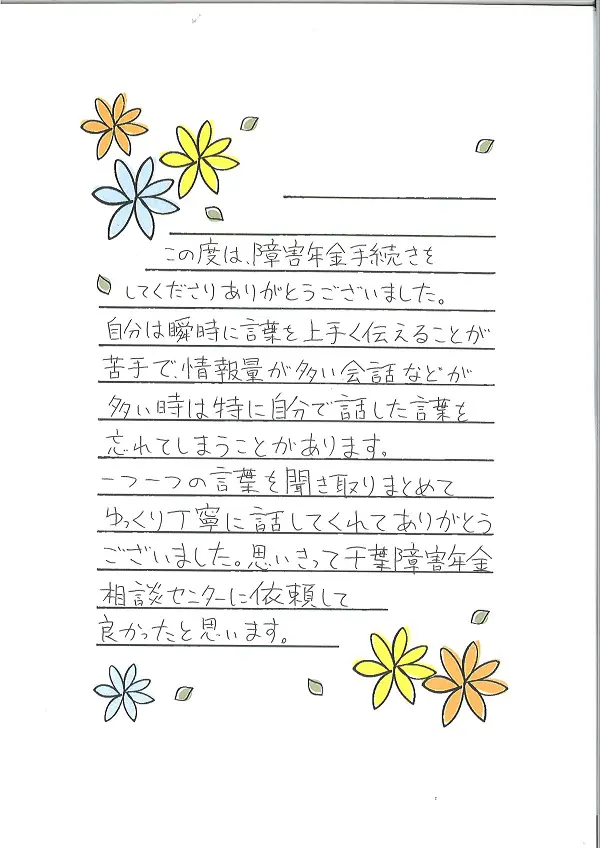 この度は、障害年金手続きを
してくださりありがとうございました。
自分は瞬時に言葉を上手く伝えることが
苦手で、情報量が多い会話などが
多い時は特に自分で話した言葉を
忘れてしまうことがあります。
一つ一つの言葉を聞き取りまとめて
ゆっくり丁寧に話してくれてありがとう
ございました。思いきって千葉障害年金
相談センターに依頼して
良かったと思います。